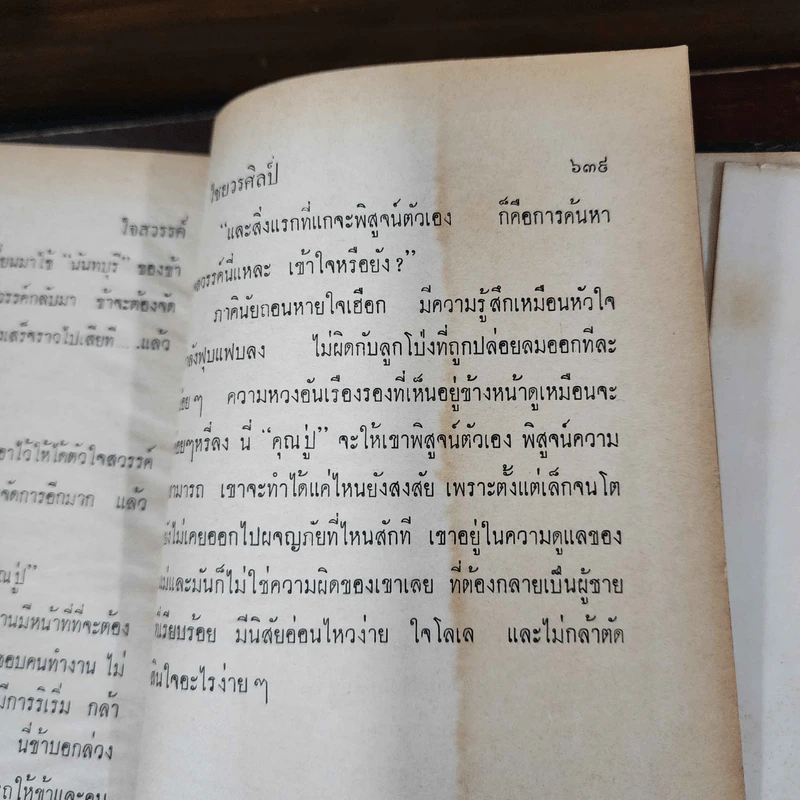 ใจสวรรค์
ยนมาใช้ "นันทบุรี" ของข้า
วรรค์กลับมา ข้าจะต้องจัด
มเสร็จราวไปเสียที....แล้ว
อาไว้ให้ได้ตัวใจสวรรค์
จัดการอีกมาก แล้ว
ณปู่"
านมีหน้าที่ที่จะต้อง
ชอบคนทำงาน ไม่
มีการริเริ่ม กล้า
นี่ข้าบอกล่วง
ให้ข้าและคน
วิชยวรศิลป์ ๖๓๙
"และสิ่งแรกที่แกจะพิสูจน์ตัวเอง ก็คือการค้นหา
สวรรค์นี่แหละ เข้าใจหรือยัง?"
ภาคินัยถอนหายใจเฮือก มีความรู้สึกเหมือนหัวใจ
ฟุบแฟบลง ไม่ผิดกับลูกโป่งที่ถูกปล่อยลมออกทีละ
อย ๆ ความหวงอันเรืองรองที่เห็นอยู่ข้างหน้าดูเหมือนจะ
อยๆหรี่ลง นี่ "คุณปู่" จะให้เขาพิสูจน์ตัวเอง พิสูจน์ความ
ามารถ เขาจะทำได้แค่ไหนยังสงสัย เพราะตั้งแต่เล็กจนโต
ังไม่เคยออกไปผจญภัยที่ไหนสักที เขาอยู่ในความดูแลของ
แม่และมันก็ไม่ใช่ความผิดของเขาเลย ที่ต้องกลายเป็นผู้ชาย
ที่เรียบร้อย มีนิสัยอ่อนไหวง่าย ใจโลเล และไม่กล้าตัด
สินใจอะไรง่าย ๆ